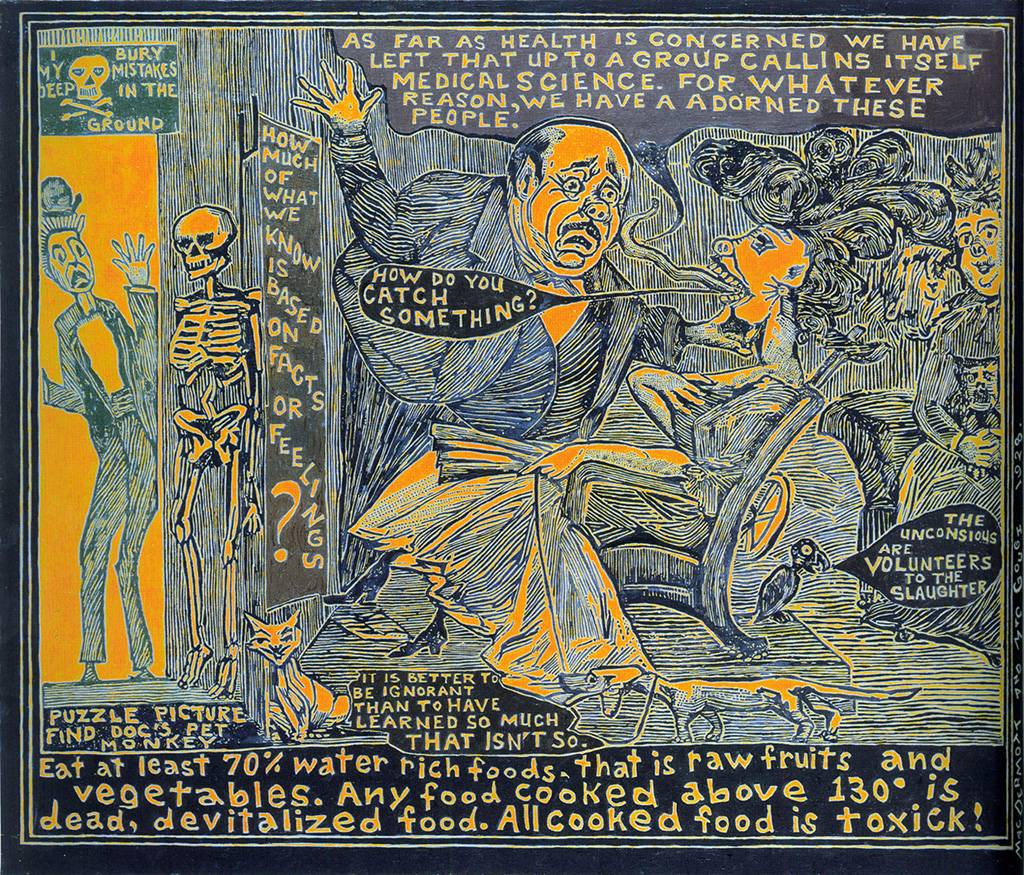 I BURY
MY MISTAKES
DEEP IN THE
GROUND
AS FAR AS HEALTH IS CONCERNED WE HAVE
LEFT THAT UP TO A GROUP CALLINS ITSELF
MEDICAL SCIENCE. FOR WHATEVER
REASON, WE HAVE A ADORNED THESE
PEOPLE.
HOW
MUCH
OF
WHAT
WE
KNOW
IS
BASED
ON
FACTS
OR
FEELINGS
?
HOW DO YOU
CATCH
SOMETHING?
THE
UNCONSIOUS
ARE
VOLUNTEERS
TO THE
SLAUGHTER
IT IS BETTER TO
BE IGNORANT
THAN TO HAVE
LEARNED SO MUCH
THAT ISN'T SO.
PUZZLE PICTURE
FIND DOC'S PET
MONKEY
Eat at least 70% water rich foods. that is raw fruits and
vegetables. Any food cooked above 130° is
dead, devitalized food. All cooked food is toxick!
MACDERMOTT AND MC GOUGH 1928.